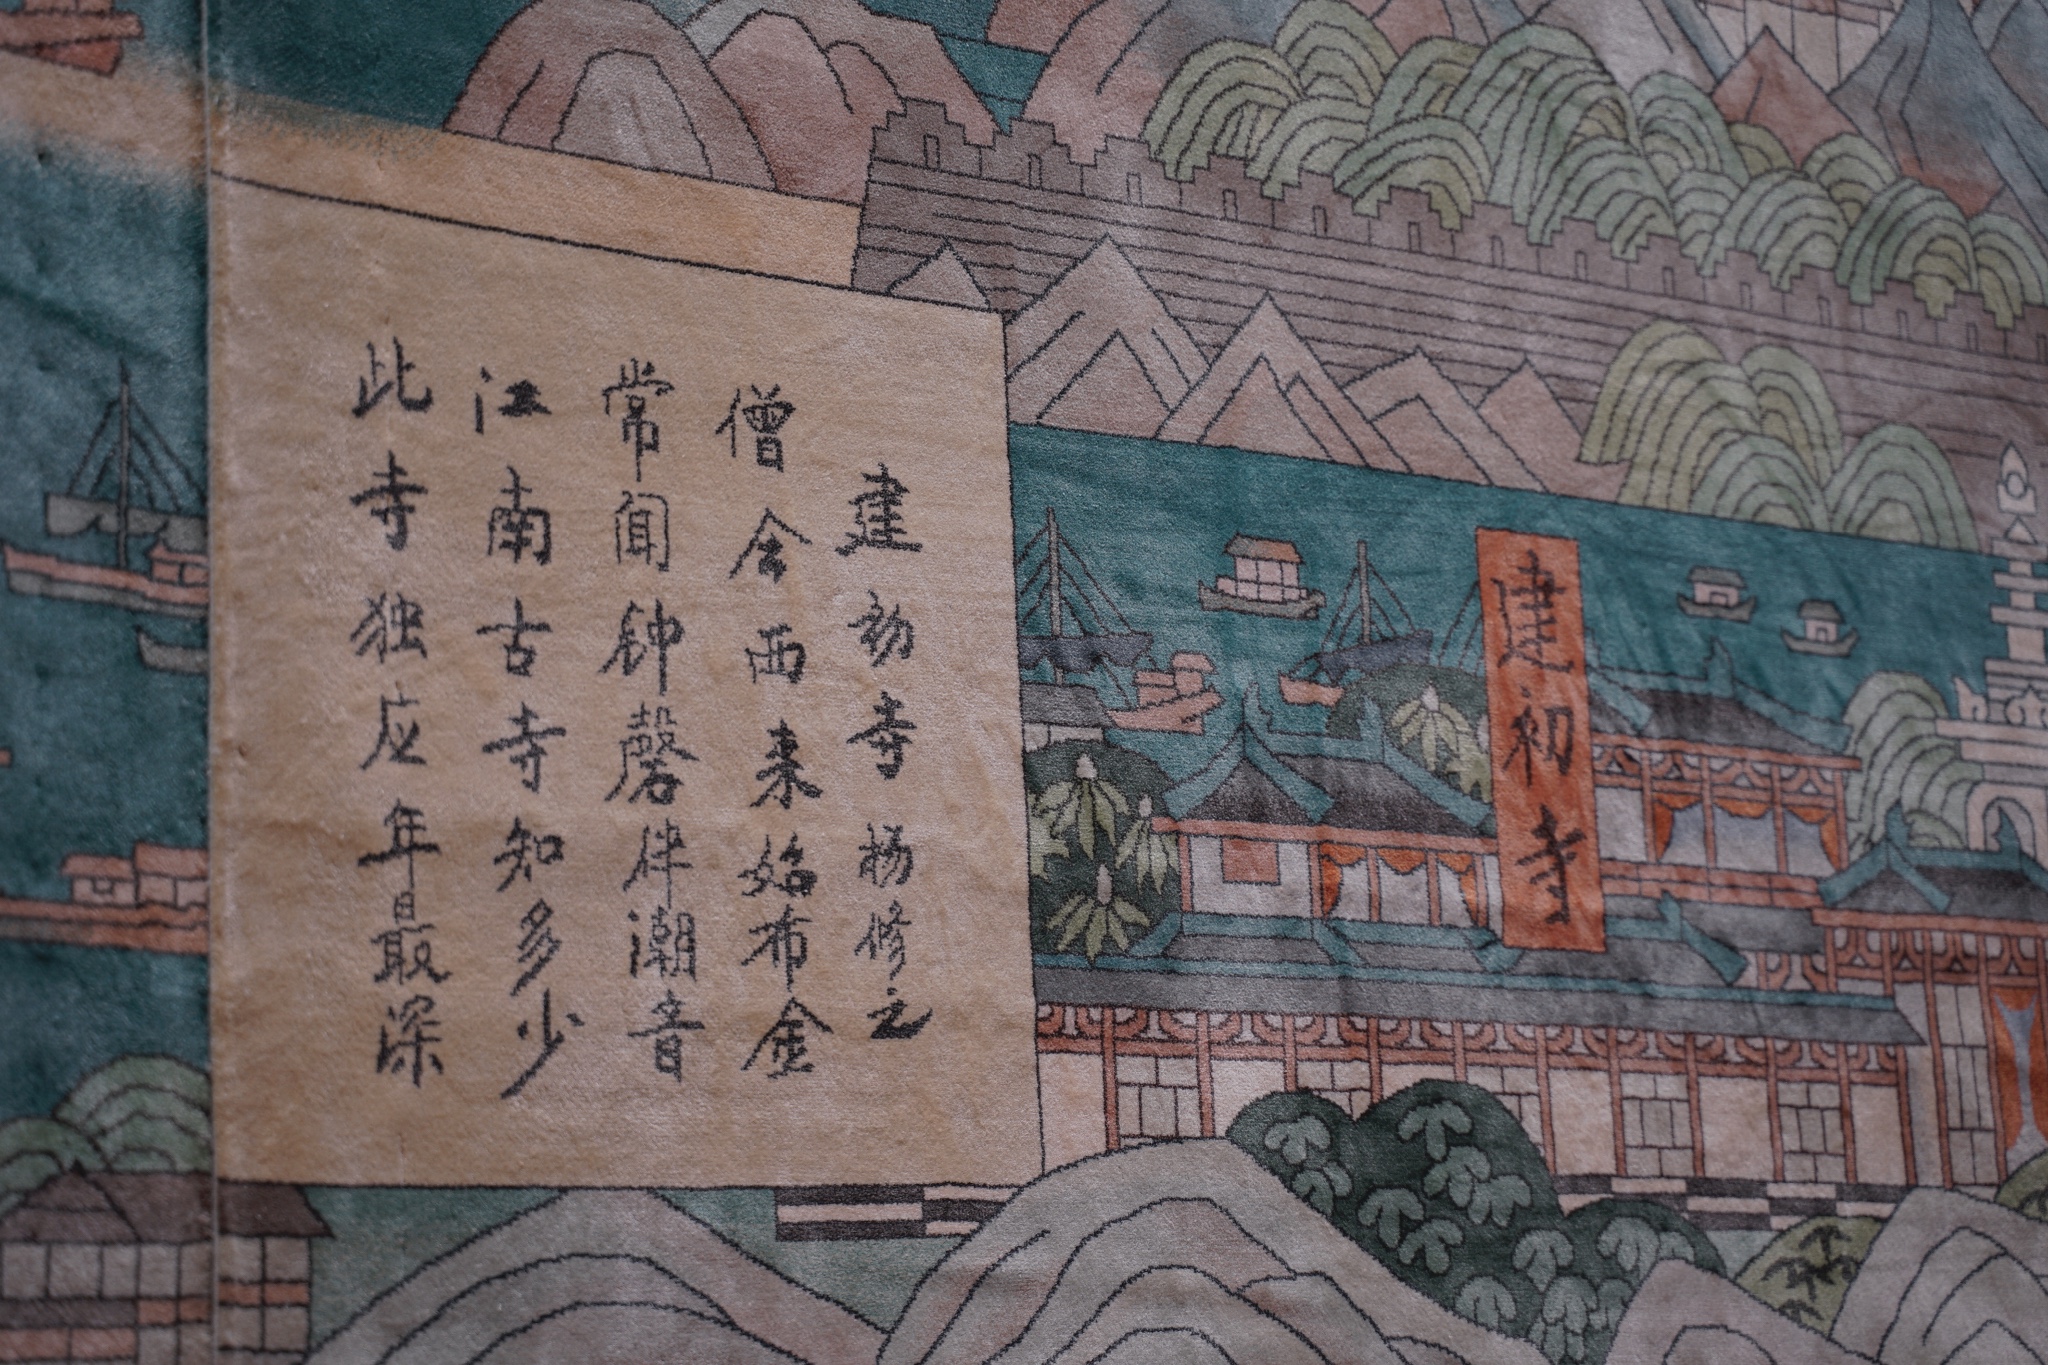 建初寺 杨修之
僧会西来始布金
常闻钟磬伴潮音
江南古寺知多少
此寺独应年最深
建初寺